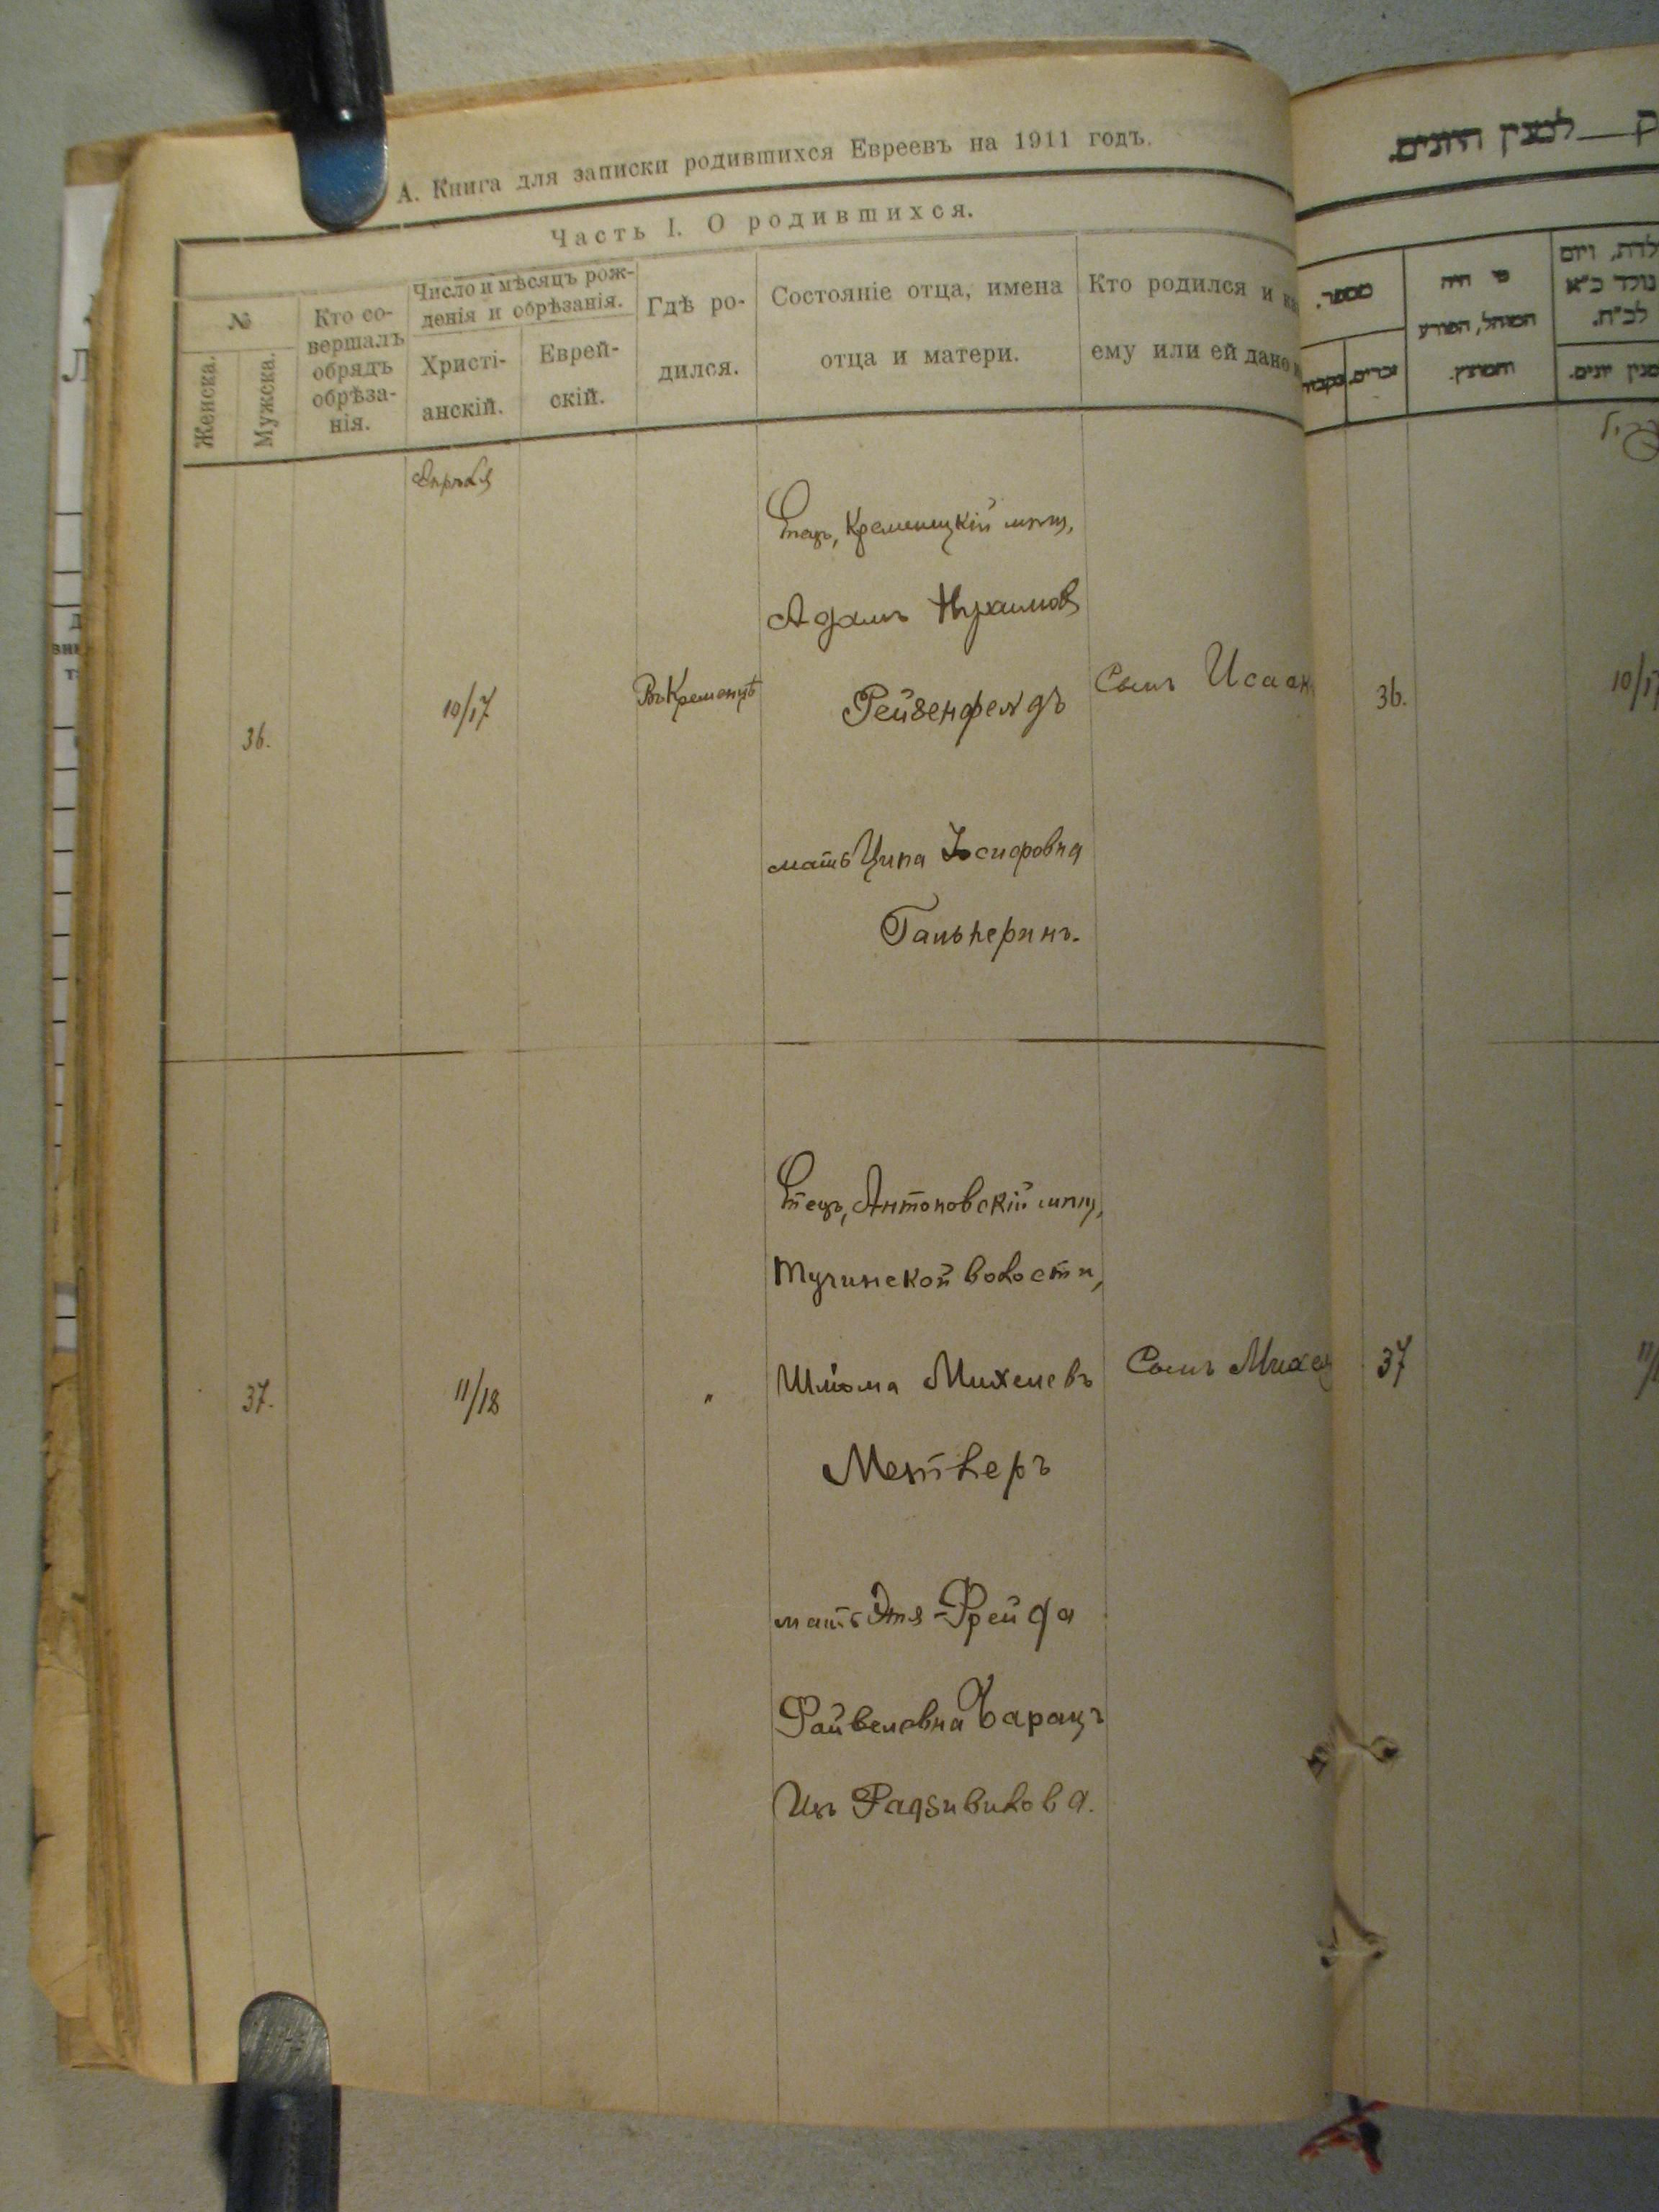 А. Книга для записки родившихся Евреевъ на 1911 годъ.
Часть I. О родившихся.
№
Женска.
Мужска.
Кто со-
вершалъ
обрядъ
обрѣза-
нія.
Число и мѣсяцъ рож-
денія и обрѣзанія.
Христі-
анскій.
Еврей-
скій.
Гдѣ ро-
дился.
Состояніе отца, имена
отца и матери.
Кто родился и
ему или ей дано
Апрѣля
36.
10/17
Въ Кременцѣ
Отецъ, Кременецкій мѣщ,
Адамъ Нухимовъ
Рейзенфельдъ
мать Ципа Іосифовна
Гальперинъ.
Сынъ Исаак
37.
11/18
"
Отецъ, Антоновскій мѣщ,
Тучинской волости,
Шлёма Михелевъ
Метлеръ
мать Этя-Фрейда
Файвелевна Барацъ
Изъ Радзивилова.
Сынъ Михел
לנצין היונים.
מספר.
זכרים.
מי היה
המוהל, הפורע
והמוצץ.
לדת, ויום
נולד כ"א
לב"ח.
36.
10/17
37